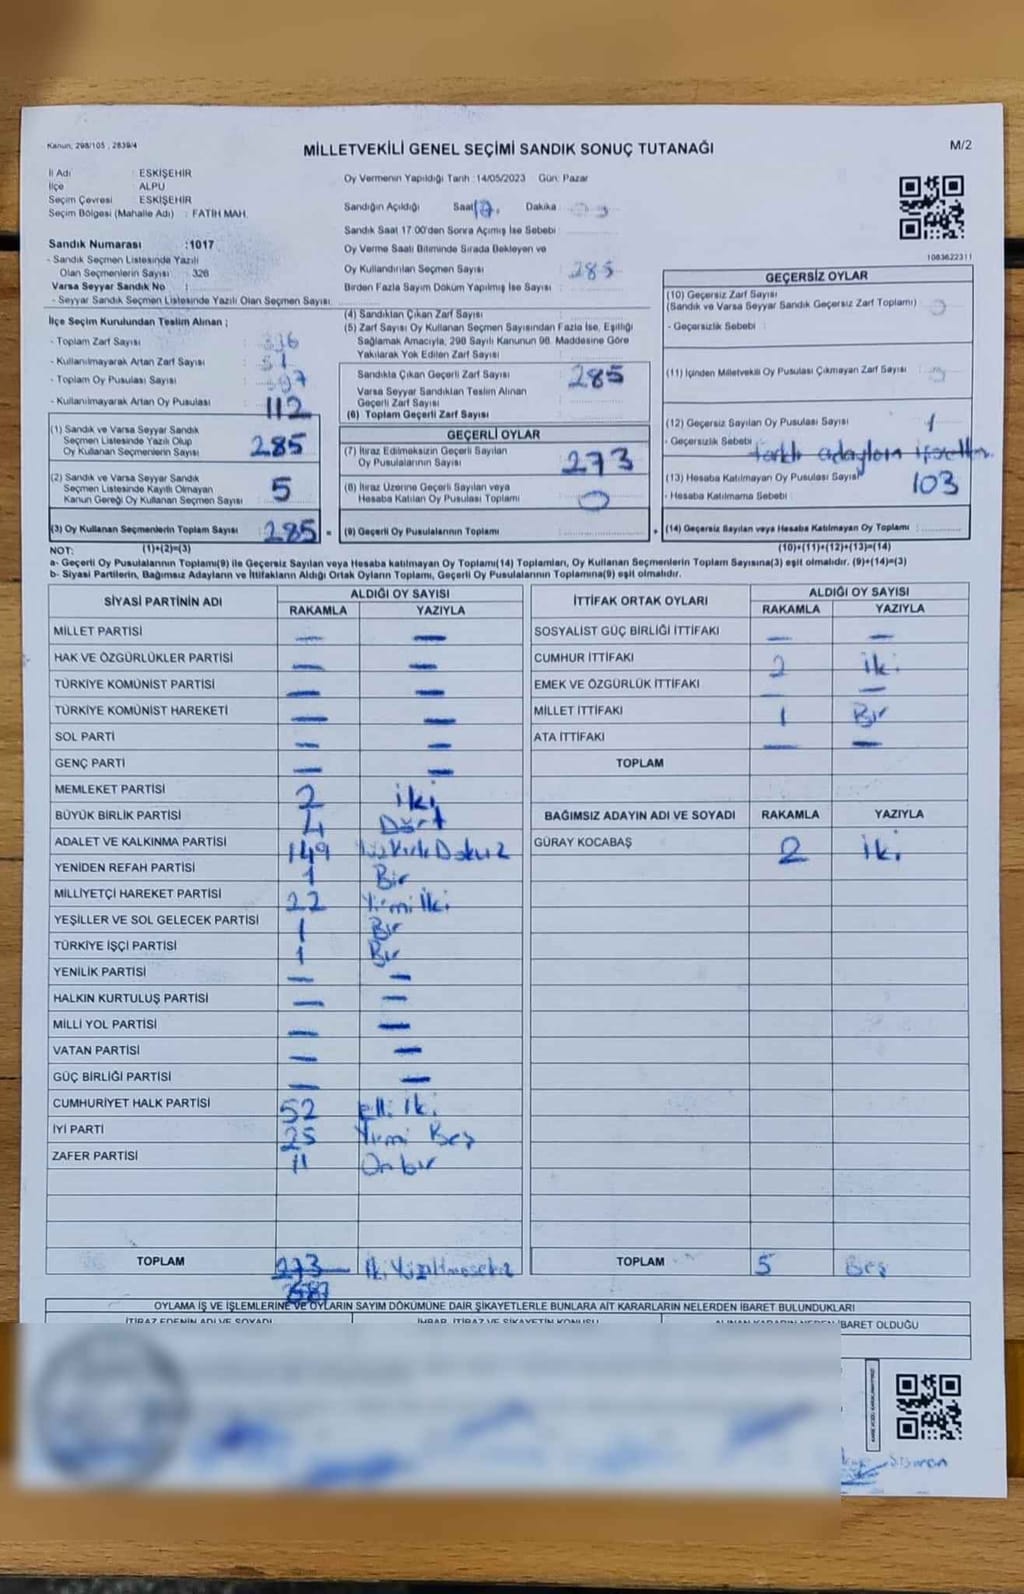 Kanun; 298/105 , 2839/4
MİLLETVEKİLİ GENEL SEÇİMİ SANDIK SONUÇ TUTANAĞI
M/2
İl Adı : ESKİŞEHİR
İlçe ALPU
Seçim Çevresi ESKİŞEHİR
Seçim Bölgesi (Mahalle Adı) : FATİH MAH.
Sandık Numarası :1017
- Sandık Seçmen Listesinde Yazılı
Olan Seçmenlerin Sayısı : 326
Varsa Seyyar Sandık No
- Seyyar Sandık Seçmen Listesinde Yazılı Olan Seçmen Sayısı:
Oy Vermenin Yapıldığı Tarih :14/05/2023 Gün: Pazar
Sandığın Açıldığı Saat Dakika
Sandık Saat 17.00'den Sonra Açımış İse Sebebi
Oy Verme Saati Bitiminde Sırada Bekleyen ve
Oy Kullandırılan Seçmen Sayısı 285
Birden Fazla Sayım Döküm Yapılmış İse Sayısı
1083622311
İlçe Seçim Kurulundan Teslim Alınan ;
- Toplam Zarf Sayısı
- Kullanılmayarak Artan Zarf Sayısı
- Toplam Oy Pusulası Sayısı
- Kullanılmayarak Artan Oy Pusulası 112
(1) Sandık ve Varsa Seyyar Sandık
Seçmen Listesinde Yazılı Olup
Oy Kullanan Seçmenlerin Sayısı 285
(2) Sandık ve Varsa Seyyar Sandık
Seçmen Listesinde Kayıtlı Olmayan
Kanun Gereği Oy Kullanan Seçmen Sayısı 5
(3) Oy Kullanan Seçmenlerin Toplam Sayısı 285 =
(4) Sandıktan Çıkan Zarf Sayısı
(5) Zarf Sayısı Oy Kullanan Seçmen Sayısından Fazla İse, Eşitliği
Sağlamak Amacıyla, 298 Sayılı Kanunun 98. Maddesine Göre
Yakılarak Yok Edilen Zarf Sayısı
Sandıkta Çıkan Geçerli Zarf Sayısı 285
Varsa Seyyar Sandıktan Teslim Alınan
Geçerli Zarf Sayısı
(6) Toplam Geçerli Zarf Sayısı
GEÇERLİ OYLAR
(7) İtiraz Edilmeksizin Geçerli Sayılan
Oy Pusulalarının Sayısı 273
(8) İtiraz Üzerine Geçerli Sayılan veya
Hesaba Katılan Oy Pusulası Toplamı 0
(9) Geçerli Oy Pusulalarının Toplamı +
GEÇERSİZ OYLAR
(10) Geçersiz Zarf Sayısı
(Sandık ve Varsa Seyyar Sandık Geçersiz Zarf Toplamı)
- Geçersizlik Sebebi :
(11) İçinden Milletvekili Oy Pusulası Çıkmayan Zarf Sayısı
(12) Geçersiz Sayılan Oy Pusulası Sayısı 1
- Geçersizlik Sebebi
(13) Hesaba Katılmayan Oy Pusulası Sayısı 103
- Hesaba Katılmama Sebebi :
(14) Geçersiz Sayılan veya Hesaba Katılmayan Oy Toplamı :
NOT: (1)+(2)=(3) (10)+(11)+(12)+(13)=(14)
a- Geçerli Oy Pusulalarının Toplamı(9) ile Geçersiz Sayılan veya Hesaba katılmayan Oy Toplamı(14) Toplamları, Oy Kullanan Seçmenlerin Toplam Sayısına(3) eşit olmalıdır. (9)+(14)=(3)
b- Siyasi Partilerin, Bağımsız Adayların ve İttifakların Aldığı Ortak Oyların Toplamı, Geçerli Oy Pusulalarının Toplamına(9) eşit olmalıdır.
SİYASİ PARTİNİN ADI ALDIĞI OY SAYISI
RAKAMLA YAZIYLA
MİLLET PARTİSİ — —
HAK VE ÖZGÜRLÜKLER PARTİSİ — —
TÜRKİYE KOMÜNİST PARTİSİ — —
TÜRKİYE KOMÜNİST HAREKETİ — —
SOL PARTİ — —
GENÇ PARTİ — —
MEMLEKET PARTİSİ 2 iki
BÜYÜK BİRLİK PARTİSİ 4 Dört
ADALET VE KALKINMA PARTİSİ 149
YENİDEN REFAH PARTİSİ 1 Bir
MİLLİYETÇİ HAREKET PARTİSİ 22 Yirmi İki
YEŞİLLER VE SOL GELECEK PARTİSİ 1 Bir
TÜRKİYE İŞÇİ PARTİSİ 1 Bir
YENİLİK PARTİSİ — —
HALKIN KURTULUŞ PARTİSİ — —
MİLLİ YOL PARTİSİ — —
VATAN PARTİSİ — —
GÜÇ BİRLİĞİ PARTİSİ — —
CUMHURİYET HALK PARTİSİ 52 elli İki
İYİ PARTİ 25 Yirmi Beş
ZAFER PARTİSİ 11 Onbir
TOPLAM 273
İTTİFAK ORTAK OYLARI ALDIĞI OY SAYISI
RAKAMLA YAZIYLA
SOSYALİST GÜÇ BİRLİĞİ İTTİFAKI — —
CUMHUR İTTİFAKI 2 iki
EMEK VE ÖZGÜRLÜK İTTİFAKI — —
MİLLET İTTİFAKI 1 Bir
ATA İTTİFAKI — —
TOPLAM
BAĞIMSIZ ADAYIN ADI VE SOYADI RAKAMLA YAZIYLA
GÜRAY KOCABAŞ 2 İki
TOPLAM 5 Beş
OYLAMA İŞ VE İŞLEMLERİNE VE OYLARIN SAYIM DÖKÜMÜNE DAİR ŞİKAYETLERLE BUNLARA AİT KARARLARIN NELERDEN İBARET BULUNDUKLARI
İTİRAZ EDENİN ADI VE SOYADI İHBAR, İTİRAZ VE ŞİKAYETİN KONUSU ALINAN KARARIN NEDEN İBARET OLDUĞU